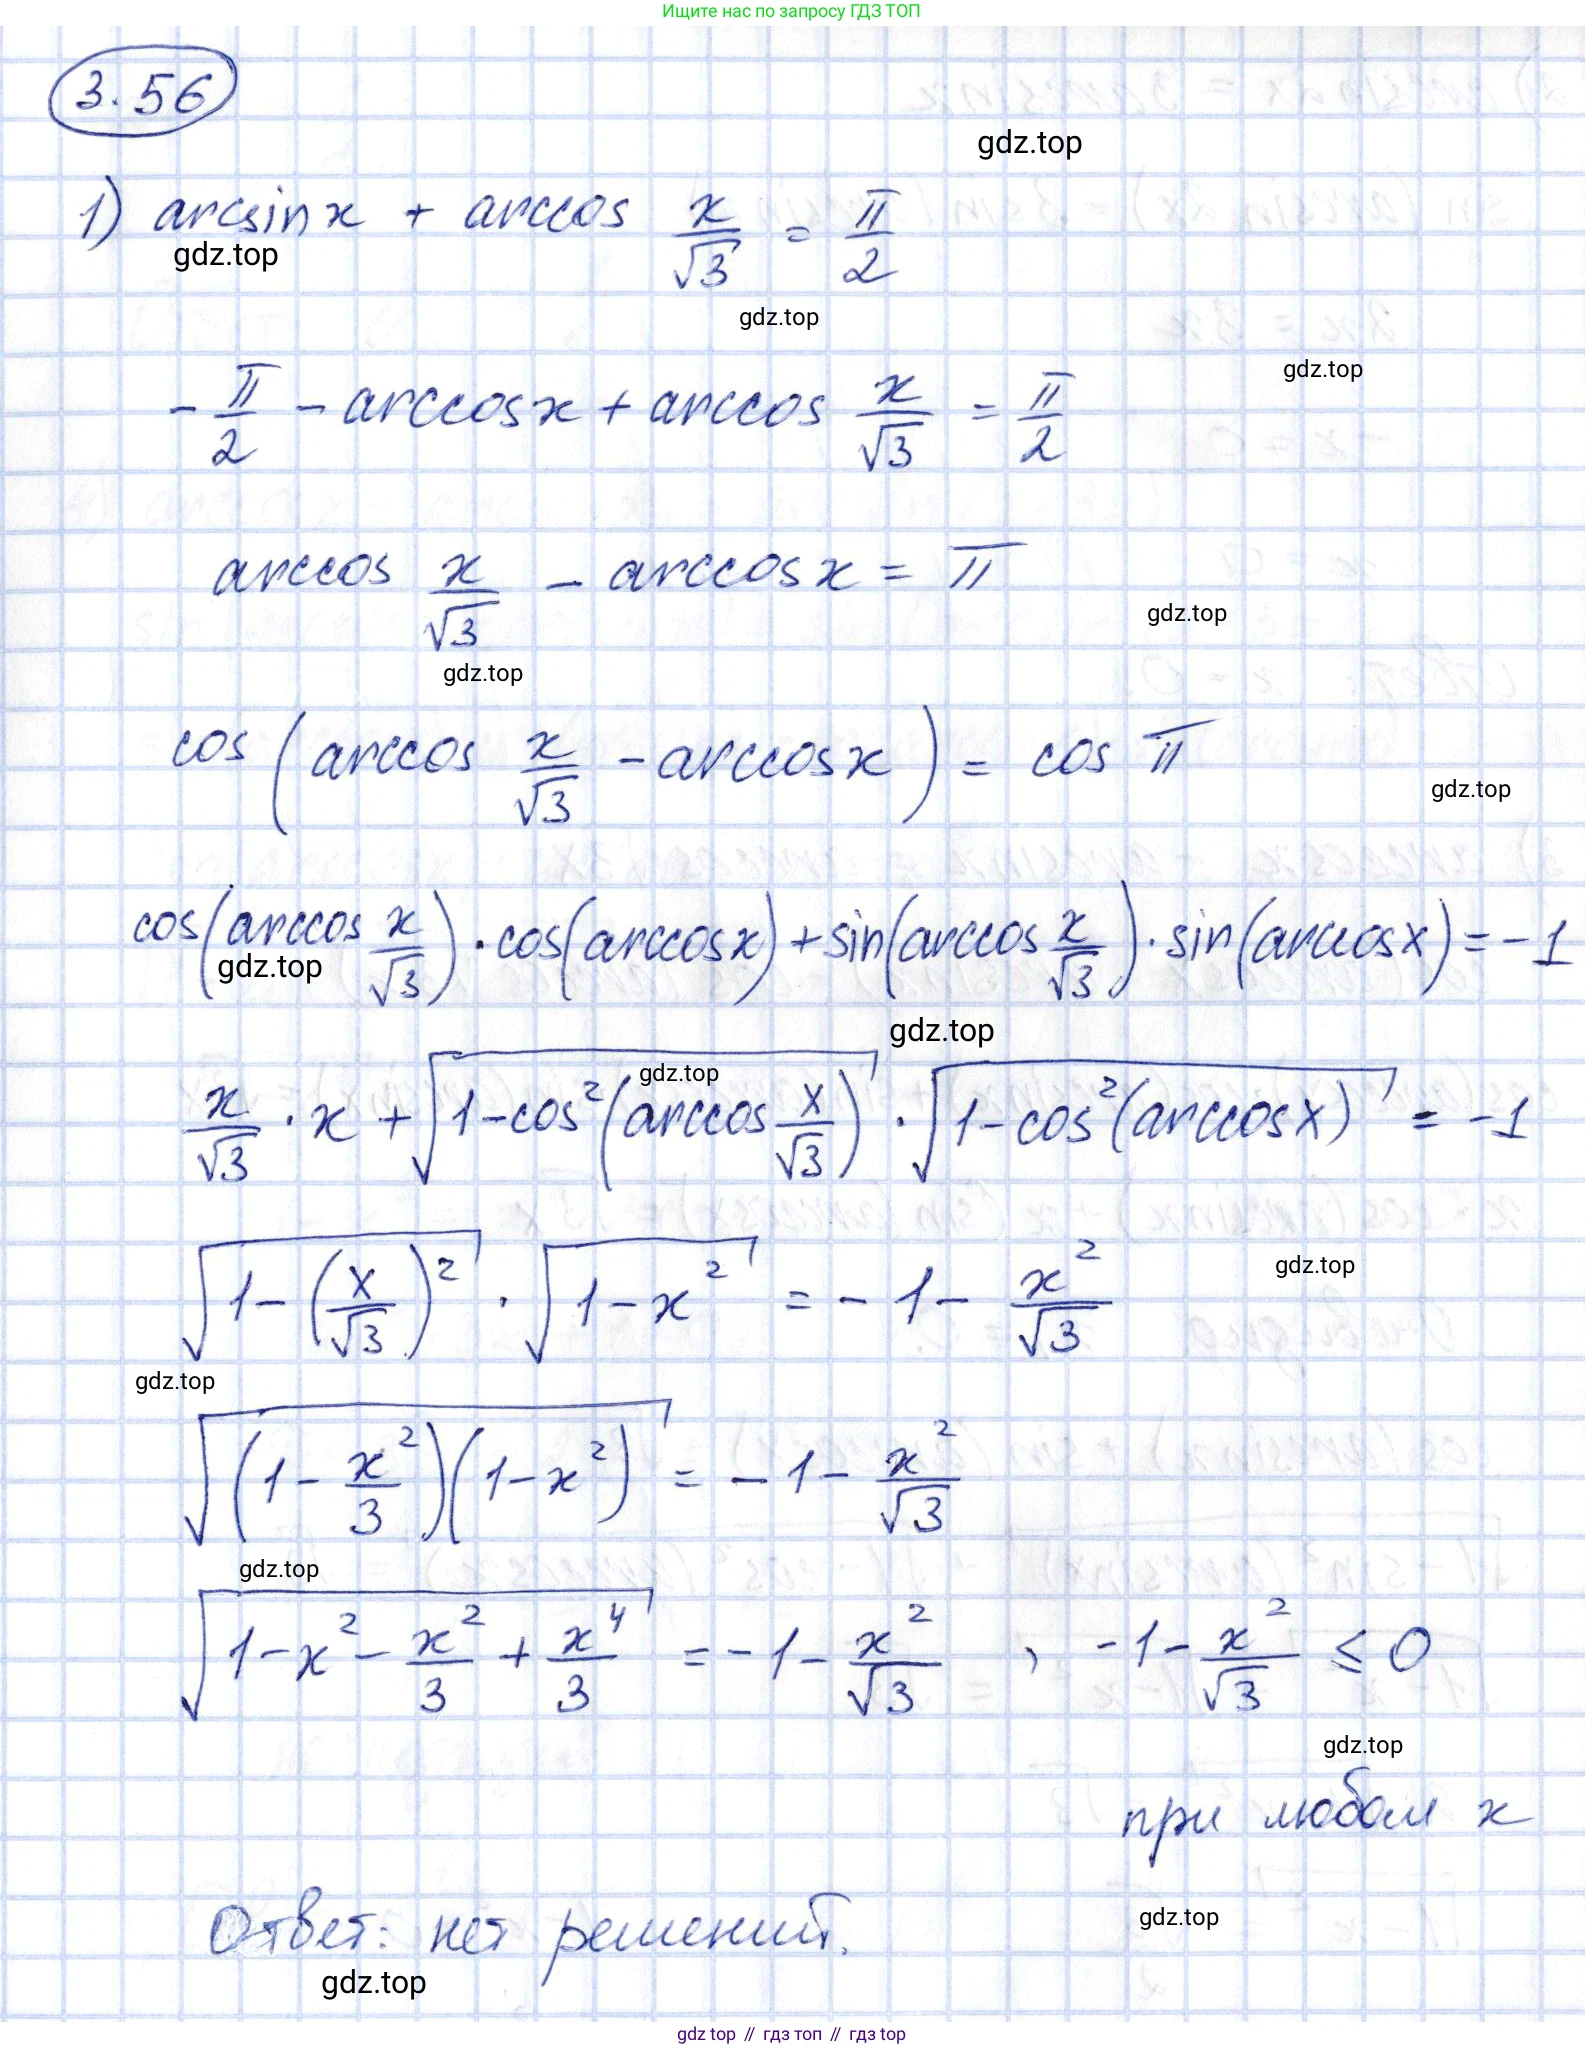 Ищите нас по запросу ГДЗ ТОП
3.56
gdz.top
1) arcsin x + arccos x/√3 = π/2
gdz.top
gdz.top
gdz.top
-π/2 - arccos x + arccos x/√3 = π/2
arccos x/√3 - arccos x = π
gdz.top
gdz.top
cos(arccos x/√3 - arccos x) = cos π
gdz.top
cos(arccos x/√3)·cos(arccos x) + sin(arccos x/√3)·sin(arccos x) = -1
gdz.top
gdz.top
gdz.top
x/√3 · x + √(1-cos²(arccos x/√3)) · √(1-cos²(arccos x)) = -1
√(1-(x/√3)²) · √(1-x²) = -1 - x²/√3
gdz.top
gdz.top
√((1-x²/3)(1-x²)) = -1 - x²/√3
gdz.top
√(1-x²-x²/3+x⁴/3) = -1 - x²/√3 , -1 - x²/√3 ≤ 0
gdz.top
при любом x
Ответ: нет решений.
gdz.top
gdz.top
gdz top // гдз топ // gdz top